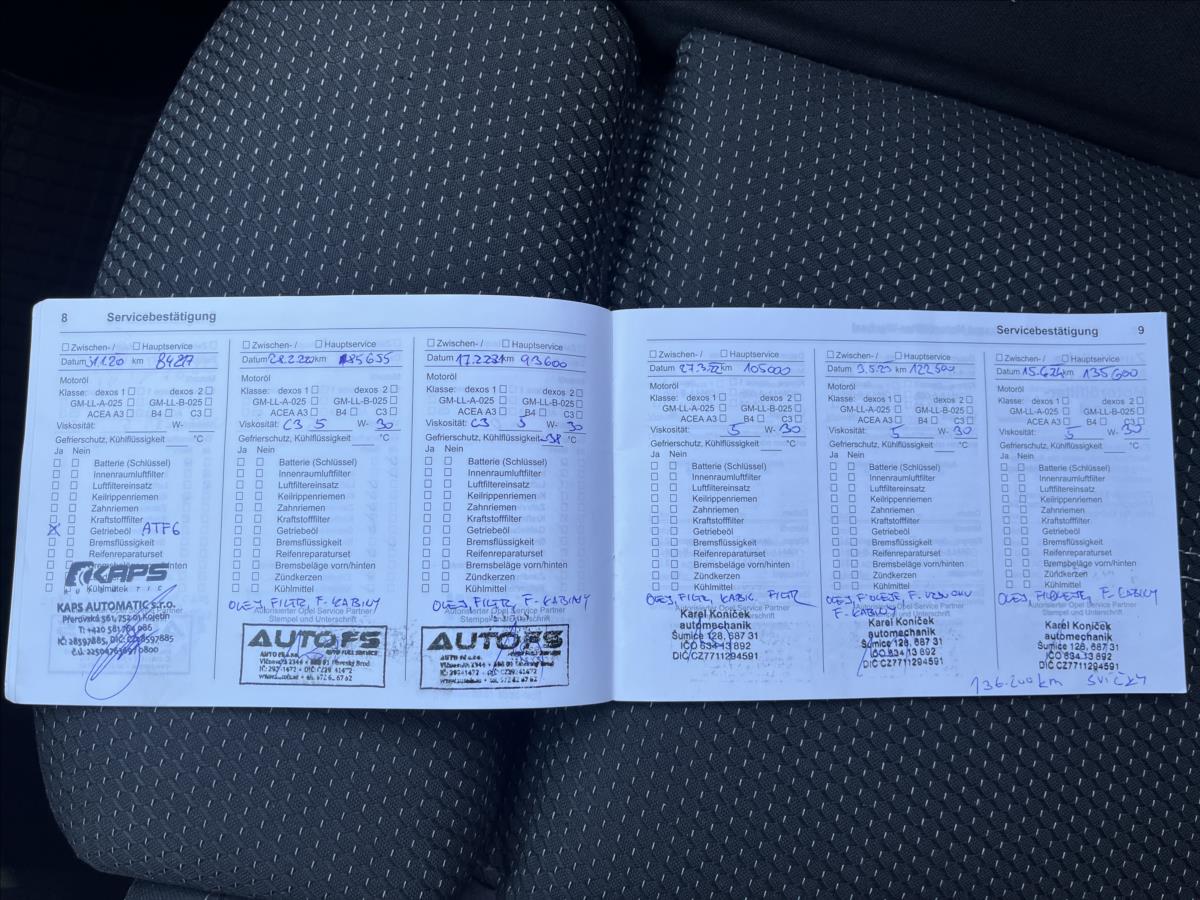 8 Servicebestätigung
Zwischen-/ Hauptservice
Datum 31.1.20 km
Motoröl
Klasse: dexos 1 dexos 2
GM-LL-A-025 GM-LL-B-025
ACEA A3 B4 C3
Viskosität: W-
Gefrierschutz, Kühlflüssigkeit °C
Ja Nein
Batterie (Schlüssel)
Innenraumluftfilter
Luftfiltereinsatz
Keilrippenriemen
Zahnriemen
Kraftstofffilter
X Getriebeöl ATF6
Bremsflüssigkeit
Reifenreparaturset
Bremsbeläge vorn/hinten
Kühlmittel
KAPS
AUTOMATIC
KAPS AUTOMATIC s.r.o.
Přerovská 561, 752 01 Kojetín
Zwischen-/ Hauptservice
Datum km 85655
Motoröl
Klasse: dexos 1 dexos 2
GM-LL-A-025 GM-LL-B-025
ACEA A3 B4 C3
Viskosität: C3 5 W- 30
Gefrierschutz, Kühlflüssigkeit °C
Ja Nein
Batterie (Schlüssel)
Innenraumluftfilter
Luftfiltereinsatz
Keilrippenriemen
Zahnriemen
Kraftstofffilter
Getriebeöl
Bremsflüssigkeit
Reifenreparaturset
Bremsbeläge vorn/hinten
Zündkerzen
Kühlmittel
OLEJ, FILTR, F-KABINY
Autorisierter Opel Service Partner /
Stempel und Unterschrift
AUTO FS
AUTO FUEL SERVICE
Zwischen-/ Hauptservice
Datum km 93600
Motoröl
Klasse: dexos 1 dexos 2
GM-LL-A-025 GM-LL-B-025
ACEA A3 B4 C3
Viskosität: C3 5 W- 30
Gefrierschutz, Kühlflüssigkeit -38 °C
Ja Nein
Batterie (Schlüssel)
Innenraumluftfilter
Luftfiltereinsatz
Keilrippenriemen
Zahnriemen
Kraftstofffilter
Getriebeöl
Bremsflüssigkeit
Reifenreparaturset
Bremsbeläge vorn/hinten
Zündkerzen
Kühlmittel
OLEJ, FILTR, F-KABINY
Autorisierter Opel Service Partner
Stempel und Unterschrift
AUTO FS
AUTO FUEL SERVICE
Servicebestätigung 9
Zwischen-/ Hauptservice
Datum 27.3.22 km 105000
Motoröl
Klasse: dexos 1 dexos 2
GM-LL-A-025 GM-LL-B-025
ACEA A3 B4 C3
Viskosität: 5 W- 30
Gefrierschutz, Kühlflüssigkeit °C
Ja Nein
Batterie (Schlüssel)
Innenraumluftfilter
Luftfiltereinsatz
Keilrippenriemen
Zahnriemen
Kraftstofffilter
Getriebeöl
Bremsflüssigkeit
Reifenreparaturset
Bremsbeläge vorn/hinten
Zündkerzen
Kühlmittel
OLEJ, FILTR, KABIN. FILTR
Autorisierter Opel Service Partner /
Stempel und Unterschrift
Karel Koníček
automechanik
Šumice 128, 687 31
IČO 634 13 892
DIČ CZ7711294591
Zwischen-/ Hauptservice
Datum 3.5.23 km 122500
Motoröl
Klasse: dexos 1 dexos 2
GM-LL-A-025 GM-LL-B-025
ACEA A3 B4 C3
Viskosität: 5 W- 30
Gefrierschutz, Kühlflüssigkeit °C
Ja Nein
Batterie (Schlüssel)
Innenraumluftfilter
Luftfiltereinsatz
Keilrippenriemen
Zahnriemen
Kraftstofffilter
Getriebeöl
Bremsflüssigkeit
Reifenreparaturset
Bremsbeläge vorn/hinten
Zündkerzen
Kühlmittel
OLEJ, F. OLEJE
F. KABINY
Karel Koníček
automechanik
Šumice 128, 687 31
634 13 892
DIČ CZ7711294591
Zwischen-/ Hauptservice
Datum 15.6.24 km 135600
Motoröl
Klasse: dexos 1 dexos 2
GM-LL-A-025 GM-LL-B-025
ACEA A3 B4 C3
Viskosität: 5 W- 30
Gefrierschutz, Kühlflüssigkeit °C
Ja Nein
Batterie (Schlüssel)
Innenraumluftfilter
Luftfiltereinsatz
Keilrippenriemen
Zahnriemen
Kraftstofffilter
Getriebeöl
Bremsflüssigkeit
Reifenreparaturset
Bremsbeläge vorn/hinten
Zündkerzen
Kühlmittel
OLEJ, F. KABINY
Karel Koníček
automechanik
Šumice 128, 687 31
IČO 634 13 892
DIČ CZ7711294591
136.200 km SVÍČKY